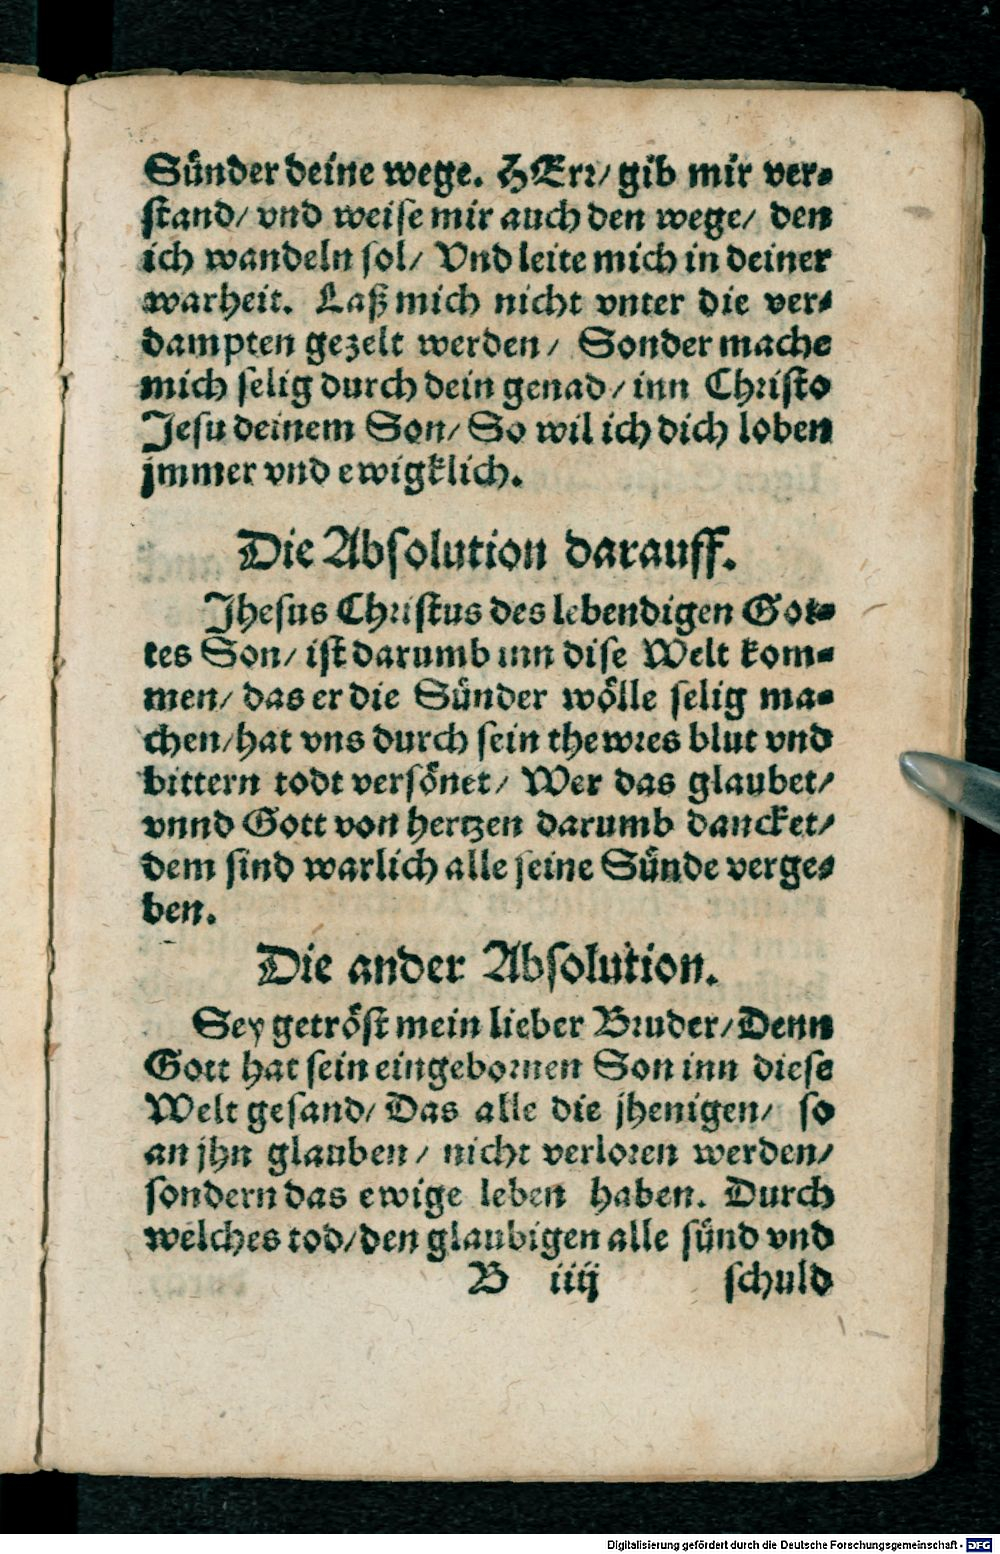 Sünder deine wege. HErr/ gib mir ver-
stand/ vnd weise mir auch den wege/ den
ich wandeln sol/ Vnd leite mich in deiner
warheit. Laß mich nicht vnter die ver-
dampten gezelt werden/ Sonder mache
mich selig durch dein genad/ inn Christo
Jesu deinem Son/ So wil ich dich loben
jmmer vnd ewigklich.
Die Absolution darauff.
Jhesus Christus des lebendigen Got-
tes Son/ ist darumb inn dise Welt kom-
men/ das er die Sünder wölle selig ma-
chen/ hat vns durch sein thewres blut vnd
bittern todt versönet/ Wer das glaubet/
vnnd Gott von hertzen darumb dancket/
dem sind warlich alle seine Sünde verge-
ben.
Die ander Absolution.
Sey getröst mein lieber Bruder/ Denn
Gott hat sein eingebornen Son inn diese
Welt gesand/ Das alle die jhenigen/ so
an jhn glauben/ nicht verloren werden/
sondern das ewige leben haben. Durch
welches tod/ den glaubigen alle sünd vnd
B iiij schuld
Digitalisierung gefördert durch die Deutsche Forschungsgemeinschaft - DFG